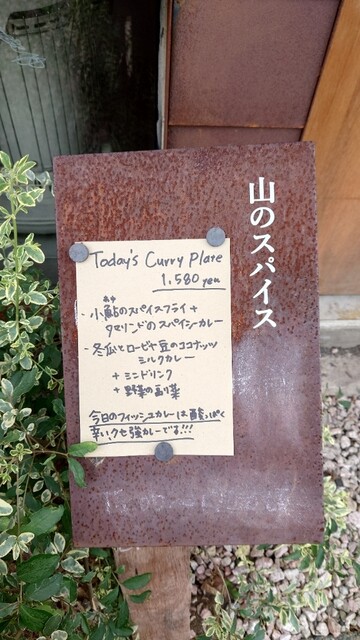 山のスパイス
Today's Curry Plate
1,580 yen
・小鮎のスパイスフライ+
タマリンドのスパイシーカレー
・冬瓜とロービヤ豆のココナッツ
ミルクカレー
+ ミニドリンク
+ 野菜の副菜
今日のフィッシュカレーは酸っぱく
辛い、クセ強カレーです!!!